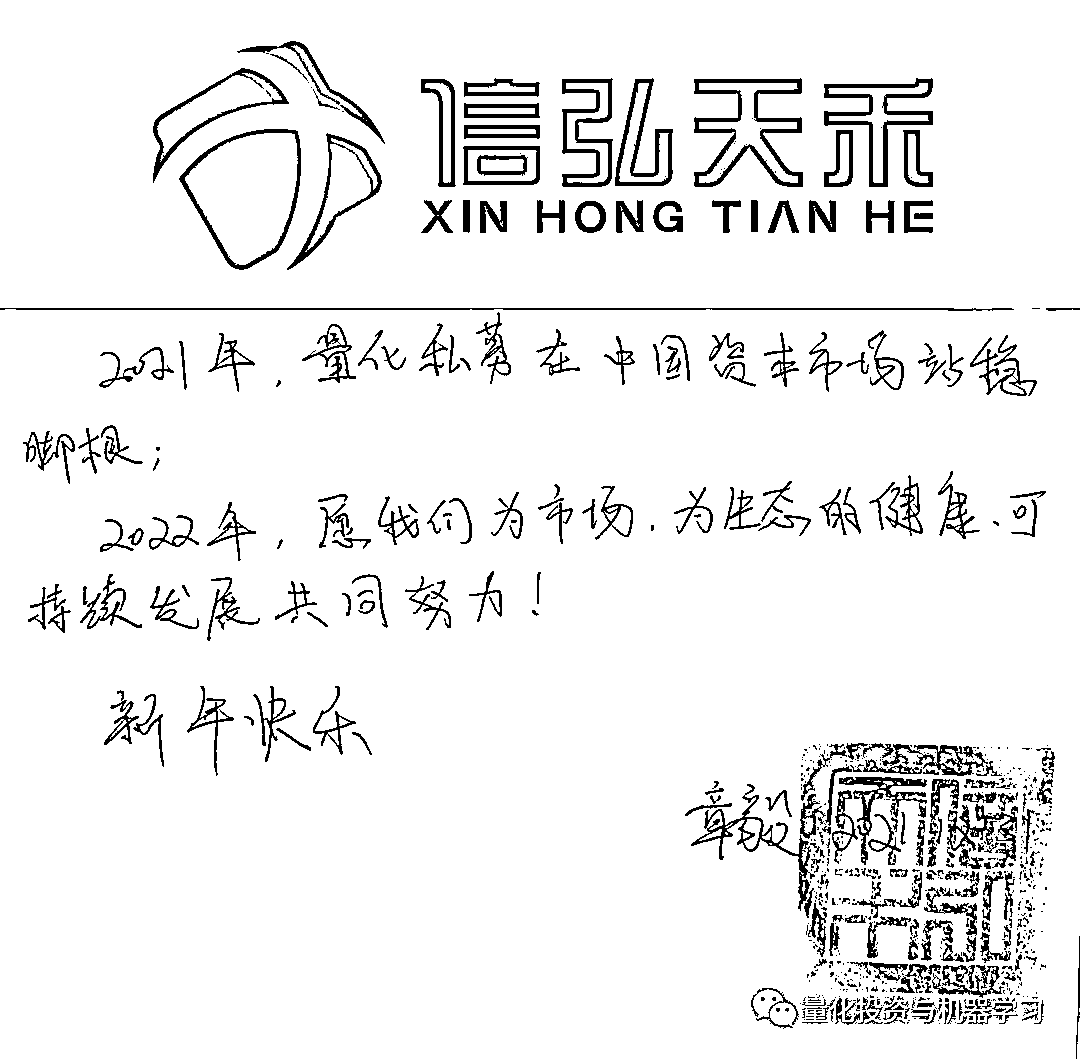 信弘天禾
XIN HONG TIAN HE
2021年，量化私募在中国资本市场站稳
脚根；
2022年，愿我们为市场、为生态的健康、可
持续发展共同努力！
新年快乐
章毅 2021
量化投资与机器学习